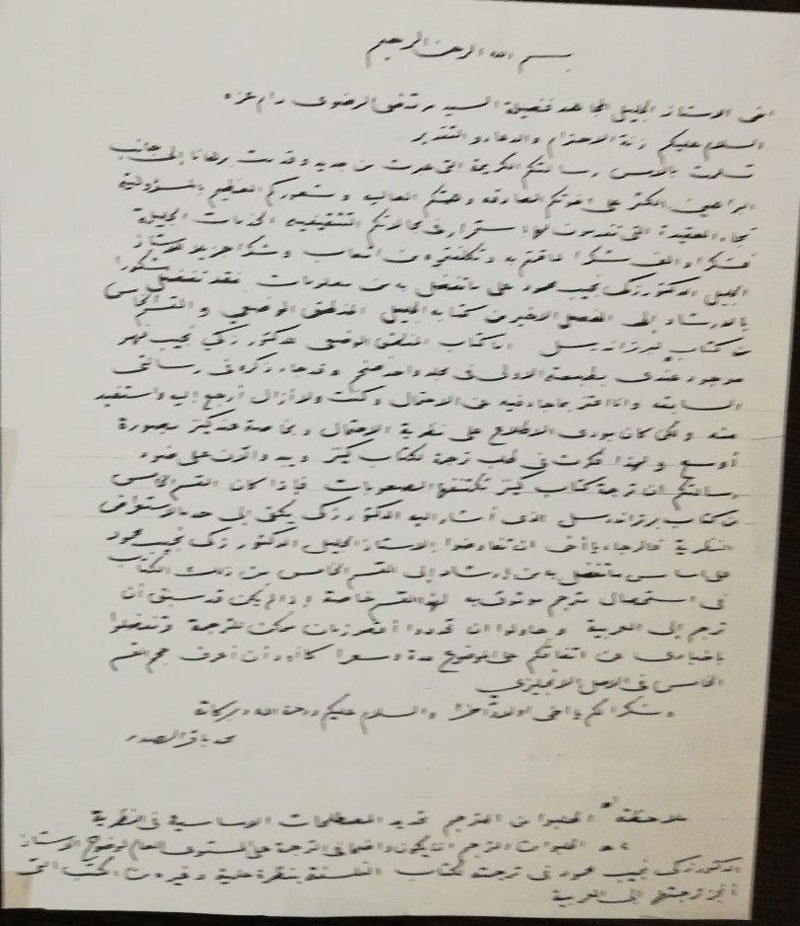 بسم الله الرحمن الرحيم
اخي الاستاذ الجليل المجاهد فضيلة السيد مرتضى الرضوي دام عزه
السلام عليكم زنة الاحترام والدعاء والتقدير
تسلمت بالامس رسالتكم الكريمة التي عبرت من جديد وقدمت برهانا إلى جانب
البراهين الكثر على اخوتكم الصادقة وهمتكم العالية وشعوركم العظيم بالمسؤولية
تجاه العقيدة التي تقدمون لها باستمرار في مجالاتكم التثقيفية الخدمات الجليلة
فشكرا والف شكرا لما قمتم به وتكلفتموه من اتعاب وشكرا جزيلا للاستاذ
الجليل الدكتور زكي نجيب محمود على ما تفضل به من معلومات فقد تفضل مشكورا
بالارشاد إلى الفصل الاخير من كتابه الجليل المنطق الوضعي والقسم الخامس
من كتاب لبرتراند رسل اما كتاب المنطق الوضعي للدكتور زكي نجيب فهو
موجود عندي بطبعته الاولى في مجلد واحد ضخم وقد جاء ذكره في رسالتي
السابقة وانا اعتز بما جاء فيه عن الاحتمال وكنت ولا أزال أرجع إليه واستفيد
منه ولكن كان بودي الاطلاع على نظرية الاحتمال وبخاصة عند كينز بصورة
أوسع ولهذا فكرت في طلب ترجمة لكتاب كينز ويبدو الآن على ضوء
رسالتكم ان ترجمة كتاب كينز تكتنفها الصعوبات فإذا كان القسم الخامس
من كتاب برتراند رسل الذي أشار اليه الدكتور زكي يكفي إلى حد ما لاستعراض
النظرية فالرجاء يا أخي ان تفاوضوا الاستاذ الجليل الدكتور زكي نجيب محمود
على اساس ما تفضل به من إرشاد إلى القسم الخامس من ذلك الكتاب
في استحصال مترجم موثوق به لهذا القسم خاصة إذا لم يكن قد سبق أن
ترجم إلى العربية وحاولوا ان تحددوا أقصر زمان ممكن للترجمة وتفضلوا
باخباري عن اتفاقكم على الموضوع مدة وسعرا كما أود أن أعرف حجم القسم
الخامس في الاصل الانجليزي
وشكرا لكم يا اخي اولا وآخرا والسلام عليكم ورحمة الله وبركاته
محمد باقر الصدر
ملاحظة اطلبوا من المترجم تحديد المصطلحات الاساسية في النظرية
اطلبوا من المترجم ان يكون واضحا في الترجمة على المستوى العام لوضوح الاستاذ
الدكتور زكي نجيب محمود في ترجمته لكتاب الفلسفة بنظرة علمية وغيره من الكتب التي
أنجز ترجمتها إلى العربية